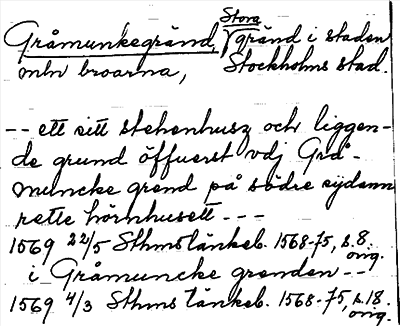 Gråmunkegränd, Stora gränd i staden
mln broarna, Stockholms stad.
-- ett sitt stehenhusz och liggen-
de grund öffuerst vdj Grå-
muncke grend på södre sydann
rette hörnhusett ---
1569 22/5 Sthms tänkeb. 1568-75, s. 8. orig.
i Gråmuncke grenden --
1569 4/3 Sthms tänkeb. 1568-75, s. 18. orig.